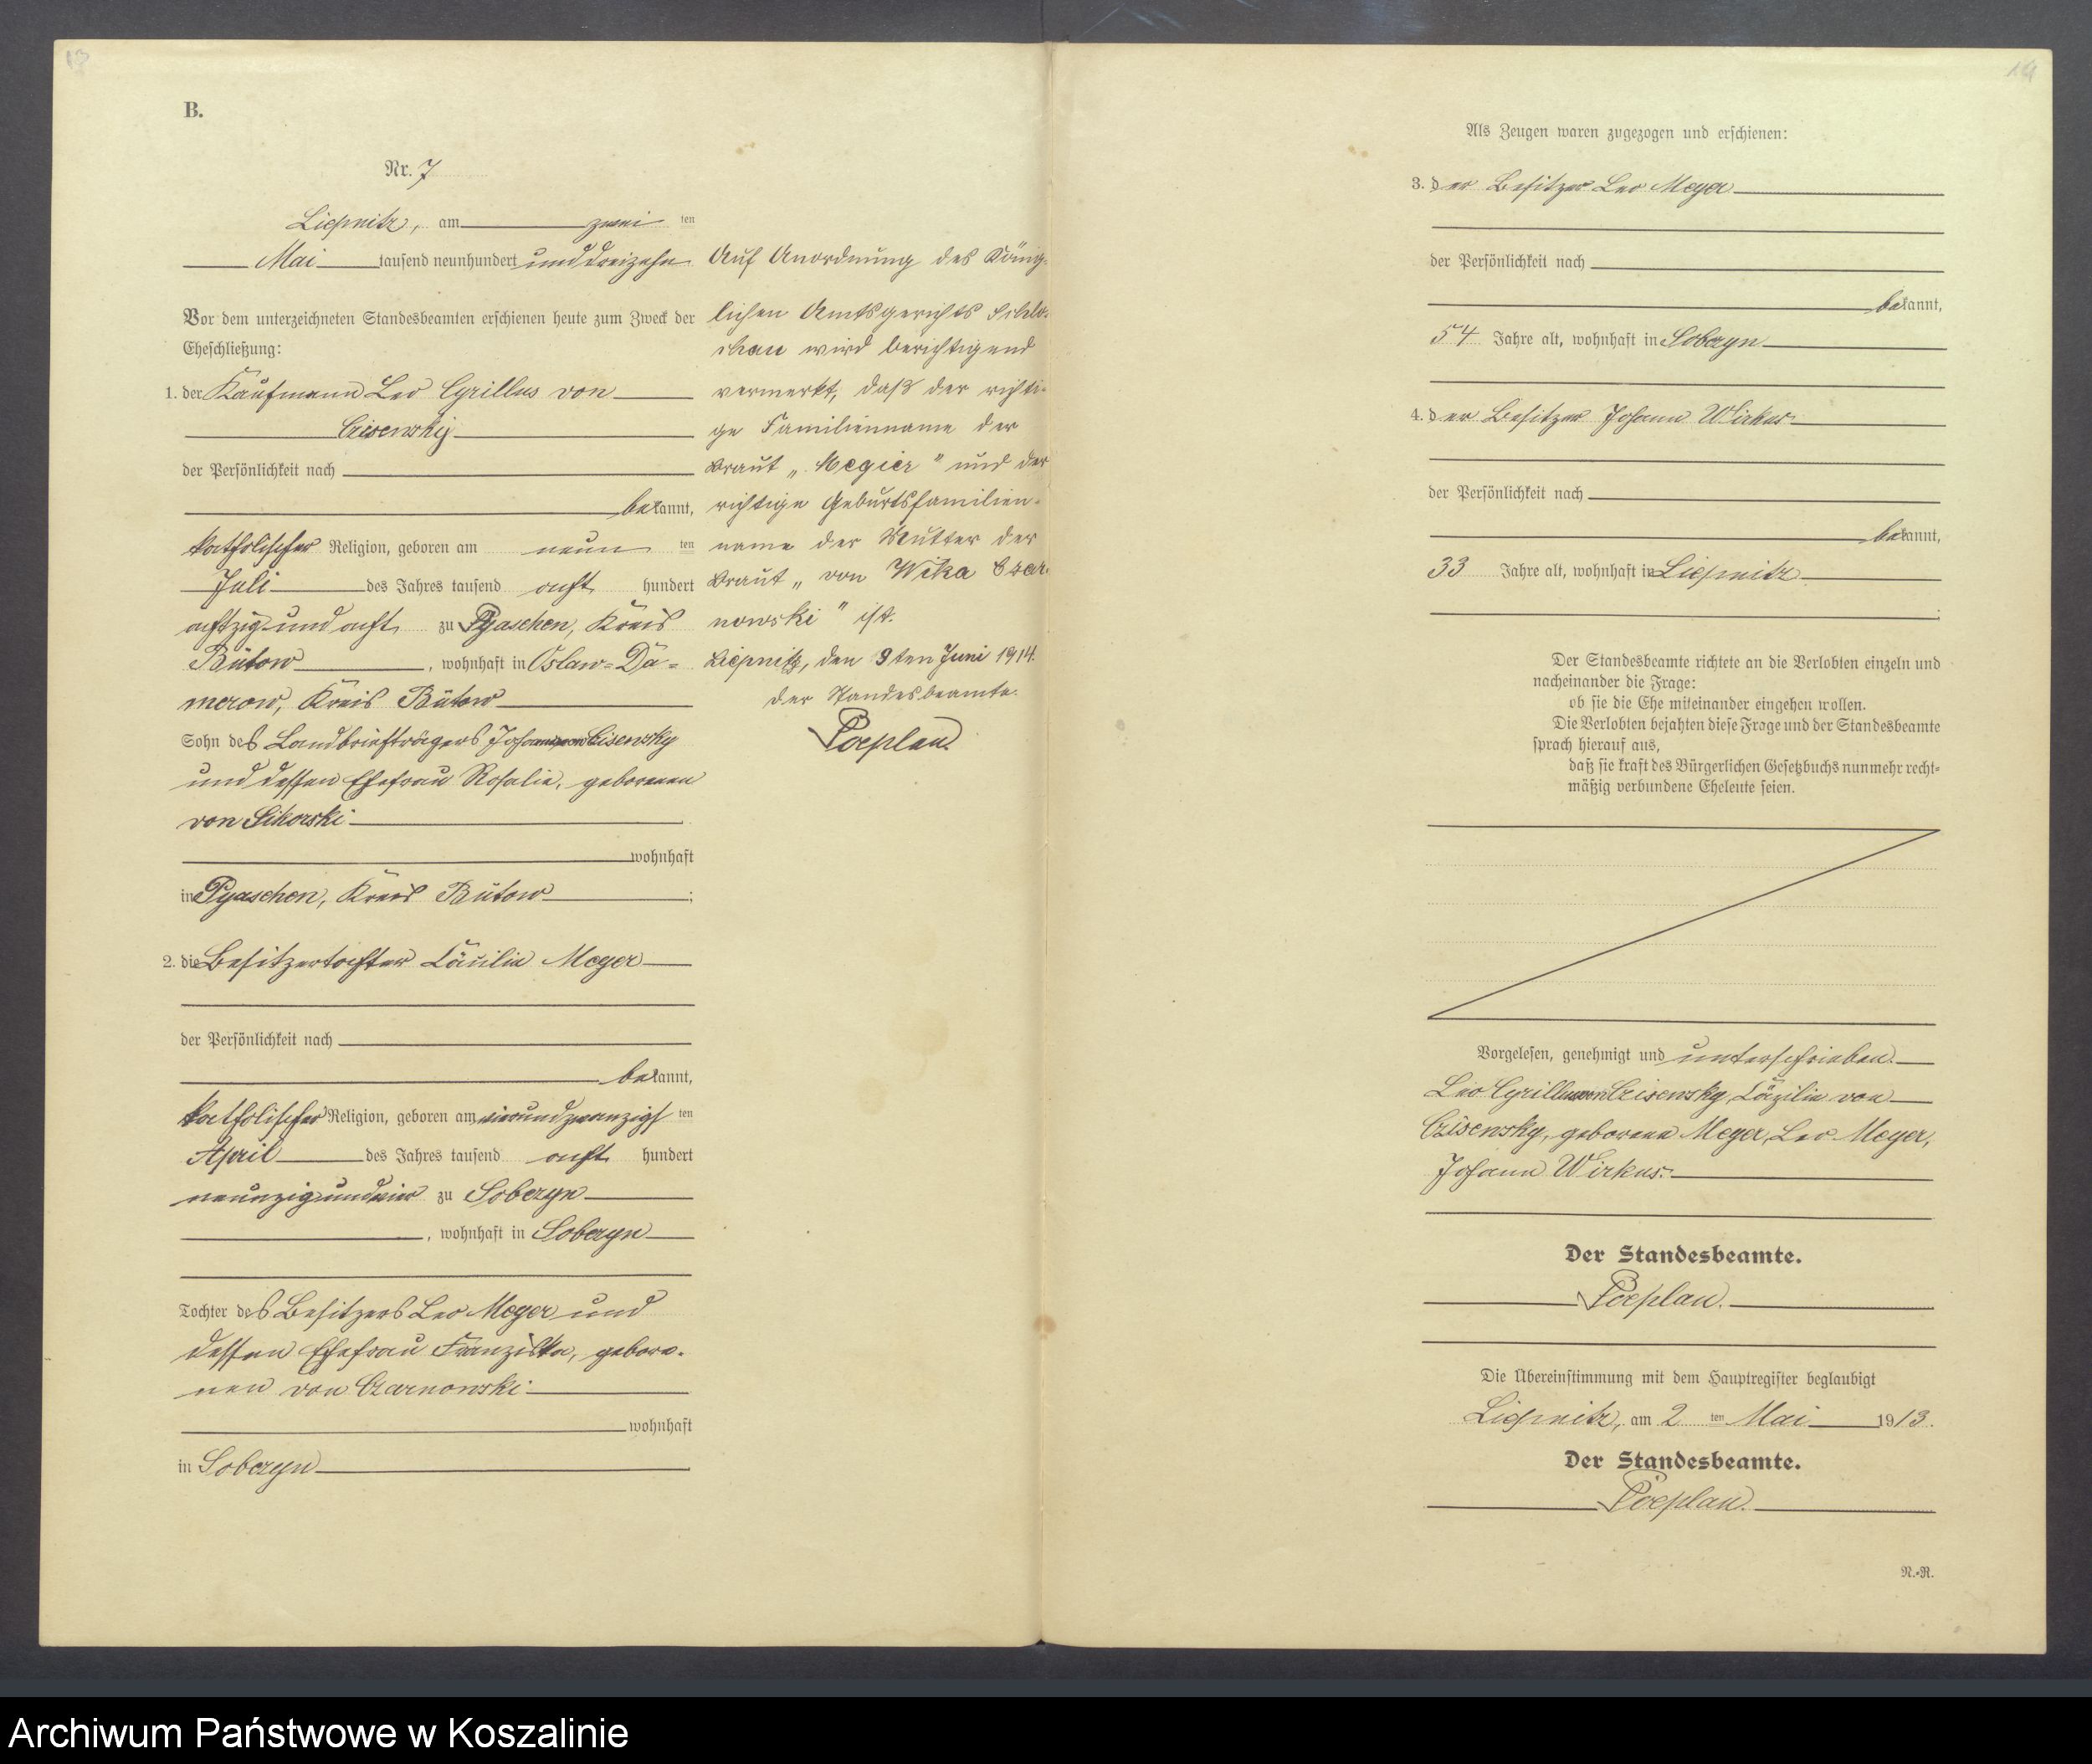 13
B.
Nr. 7
Liepnitz, am zwei ten
Mai tausend neunhundert und dreizehn
Vor dem unterzeichneten Standesbeamten erschienen heute zum Zweck der
Eheschließung:
1. der Kaufmann Leo Cyrillus von
Czisewsky
der Persönlichkeit nach
bekannt,
katholischer Religion, geboren am neun ten
Juli des Jahres tausend acht hundert
achtzig und acht zu Pyaschen, Kreis
Bütow, wohnhaft in Oslaw-Da-
merow, Kreis Bütow
Sohn des Landbriefträgers Johann von Cisewsky
und dessen Ehefrau Rosalie, geborenen
von Sikorski
wohnhaft
in Pyaschen, Kreis Bütow;
2. die Besitzertochter Cäcilia Meger
der Persönlichkeit nach
bekannt,
katholischer Religion, geboren am vierundzwanzigs ten
April des Jahres tausend acht hundert
neunzig und vier zu Sobczyn
, wohnhaft in Sobczyn
Tochter des Besitzers Leo Meger und
dessen Ehefrau Franziska, gebore-
nen von Czarnowski
wohnhaft
in Sobczyn
Auf Anordnung des König-
lichen Amtsgerichts Schlo-
chau wird berichtigend
vermerkt, daß der richti-
ge Familienname der
Braut „Megier" und der
richtige Geburtsfamilien-
name der Mutter der
Braut „von Wika Czar-
nowski" ist.
Liepnitz, den 9ten Juni 1914.
Der Standesbeamte.
Poeplau.
14
Als Zeugen waren zugezogen und erschienen:
3. der Besitzer Leo Meger
der Persönlichkeit nach
bekannt,
54 Jahre alt, wohnhaft in Sobczyn
4. der Besitzer Johann Wirkus
der Persönlichkeit nach
bekannt,
33 Jahre alt, wohnhaft in Liepnitz
Der Standesbeamte richtete an die Verlobten einzeln und
nacheinander die Frage:
ob sie die Ehe miteinander eingehen wollen.
Die Verlobten bejahten diese Frage und der Standesbeamte
sprach hierauf aus,
daß sie kraft des Bürgerlichen Gesetzbuchs nunmehr recht-
mäßig verbundene Eheleute seien.
Vorgelesen, genehmigt und unterschrieben.
Leo Cyrillus von Czisewsky, Cäzilie von
Czisewsky, geborene Meger, Leo Meger,
Johann Wirkus.
Der Standesbeamte.
Poeplau.
Die Übereinstimmung mit dem Hauptregister beglaubigt
Liepnitz, am 2 ten Mai 1913.
Der Standesbeamte.
Poeplau.
N.-R.
Archiwum Państwowe w Koszalinie